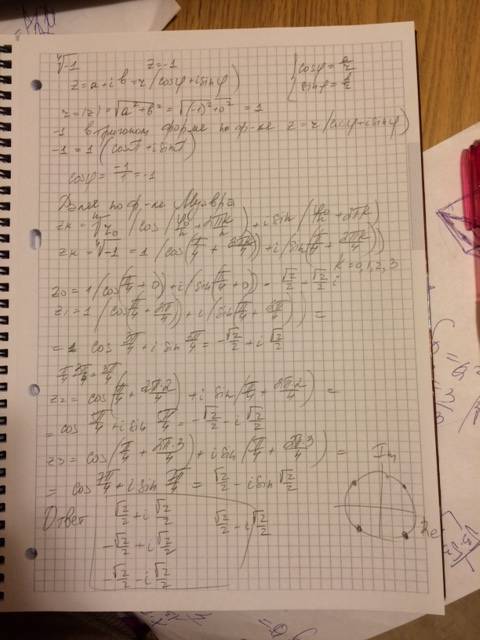 ⁴√-1 z=-1
z=a+ib=r(cosφ+isinφ)
{cosφ=a/r
sinφ=b/r
r=|z|=√a²+b²=√(-1)²+0²=1
-1 в тригоном форме по ф-ле z=r(cosφ+isinφ)
-1=1(cosπ+isinπ)
cosφ=-1/1=-1
Далее по ф-ле Муавра
zк=ⁿ√r₀(cos(φ₀/n+2πk/n)+isin(φ₀/n+2πk))
zк=⁴√-1=1(cos(π/4+2πk/4)+i(sin(π/4+2πk/4))
k=0,1,2,3
z₀=1(cos(π/4+0)+i(sin(π/4+0)=√2/2-√2/2i
z₁=1(cos(π/4+2π/4)+i(sin(π/4+2π/4))=
=1 cos 3π/4+i sin 3π/4=-√2/2+i√2/2
z₂=cos(π/4+2π·2/4)+i sin(π/4+2π·2/4)=
=cos 5π/4+i sin 5π/4=-√2/2-i√2/2
z₃=cos(π/4+2π·3/4)+i sin(π/4+2π·3/4)=
=cos 7π/4+i sin 7π/4=√2/2-i sin √2/2
Ответ √2/2+i√2/2 √2/2-i√2/2
-√2/2+i√2/2
-√2/2-i√2/2
Im
Re